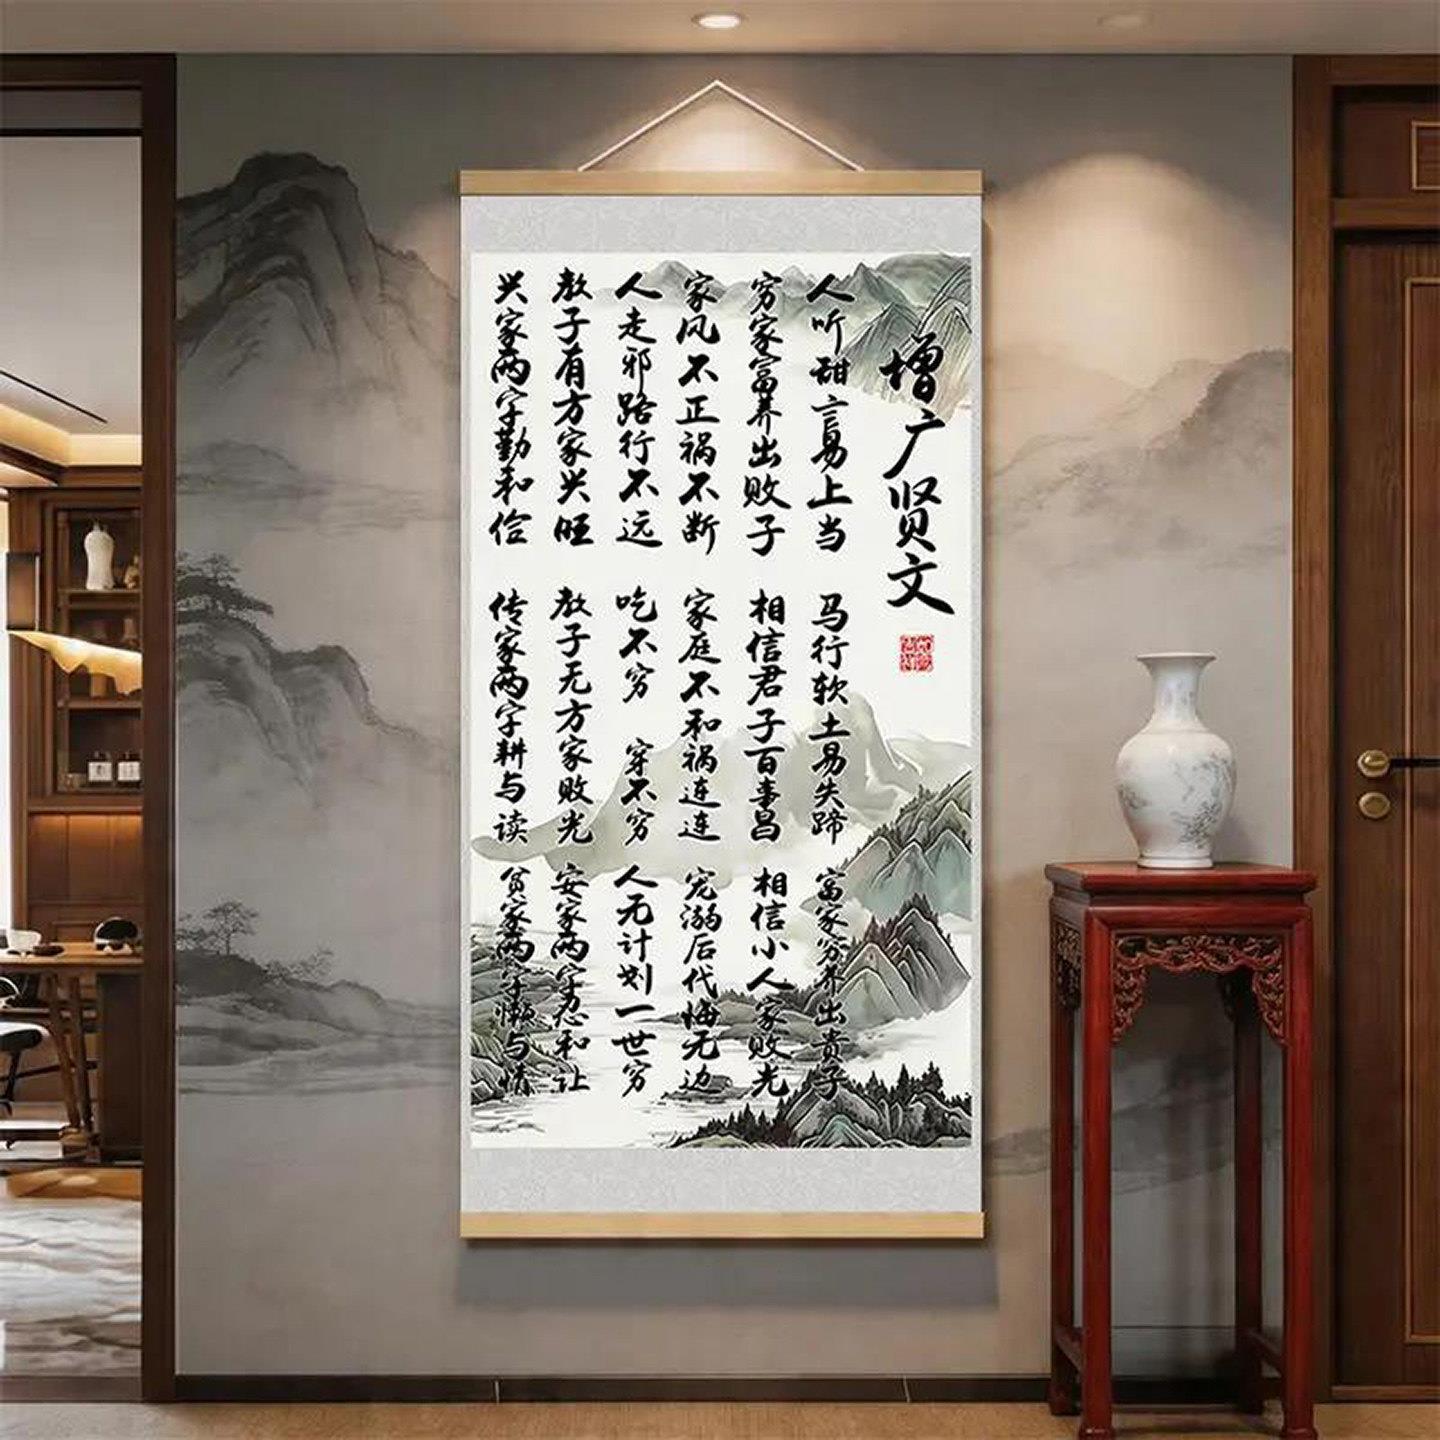 增广贤文
人听甜言易上当 马行软土易失蹄 富家穷养出贵子
穷家富养出败子 相信君子百事昌 相信小人家败光
家风不正祸不断 家庭不和祸连连 宠溺后代悔无边
人走邪路行不远 吃不穷 穿不穷 人无计划一世穷
教子有方家兴旺 教子无方家败光 安家两字忍和让
兴家两字勤和俭 传家两字耕与读 贫家两字懒与惰